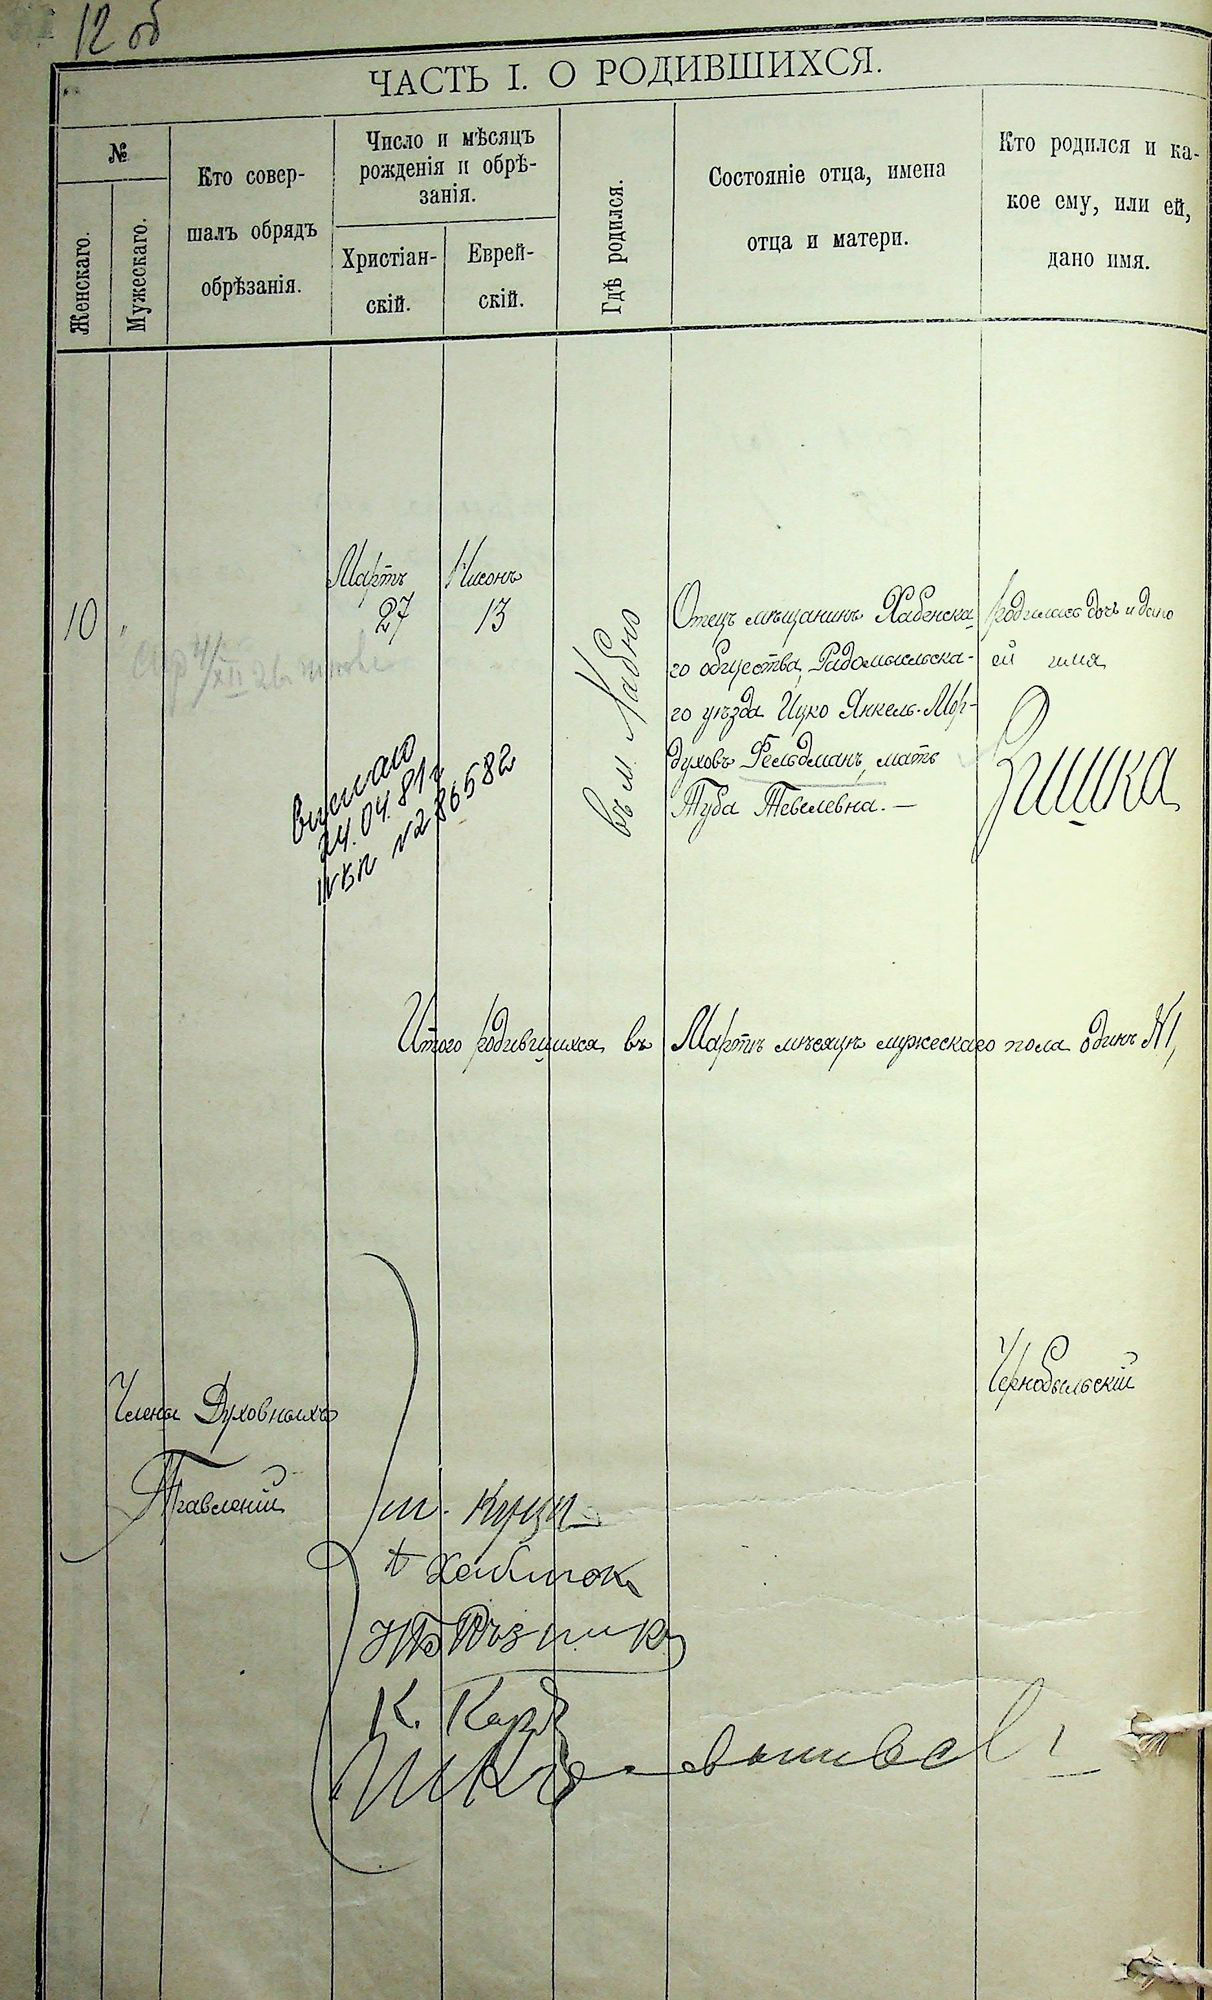 12 об
ЧАСТЬ I. О РОДИВШИХСЯ.
№
Женскаго.
Мужескаго.
Кто совер-
шалъ обрядъ
обрѣзанія.
Число и мѣсяцъ
рожденія и обрѣ-
занія.
Христіан-
скій.
Еврей-
скій.
Гдѣ родился.
Состояніе отца, имена
отца и матери.
Кто родился и ка-
кое ему, или ей,
дано имя.
10
"
Мартъ
27
Нисонъ
13
въ м. Хабно
Отецъ мѣщанинъ Хабенска-
го общества, Радомысльска-
го уѣзда Ицко Янкель-Мор-
духовъ Фельдманъ, мать
Туба Тевелевна. —
Родилась дочь и дано
ей имя
24.04.81г
N286582
Итого родившихся въ Мартѣ мѣсяцѣ мужескаго пола одинъ №1,
Члены Духовныхъ
Правленій
Чернобыльскій
К.